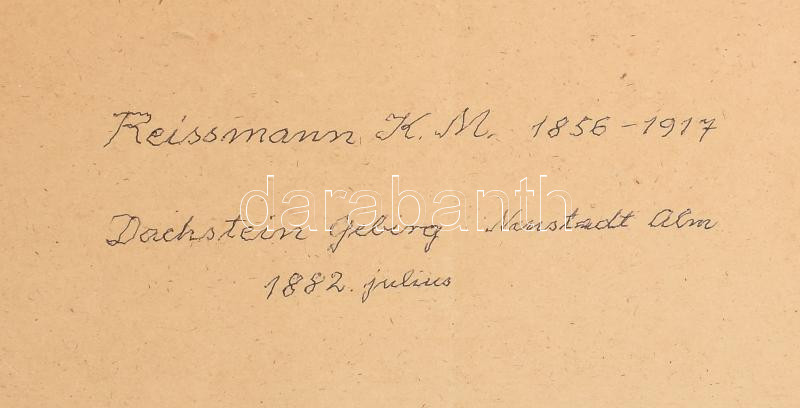 Reissmann K. M. 1856-1917
darabanth
Dachstein Gebirg Neustadt Alm
1882. julius